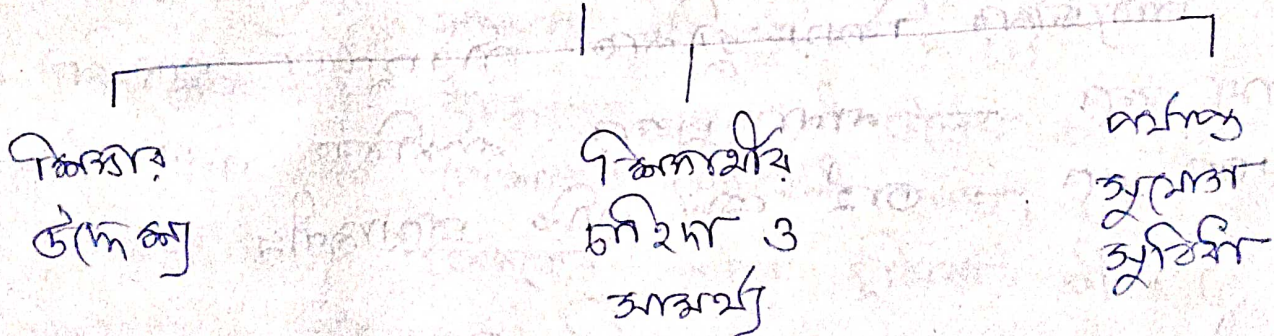 শিক্ষার
উদ্দেশ্য
শিক্ষার্থীর
চাহিদা ও
সামর্থ্য
পর্যাপ্ত
সুযোগ
সুবিধা